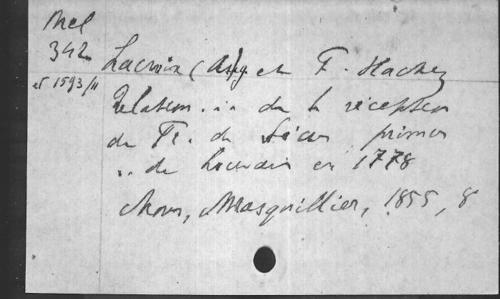 Mel
342
et 1593/11
Lacroix (Aug et F. Hachez
Relation ... de la réception
de Fr. de primus
... de Louvain en 1778
Mons, Masquillier, 1855, 8